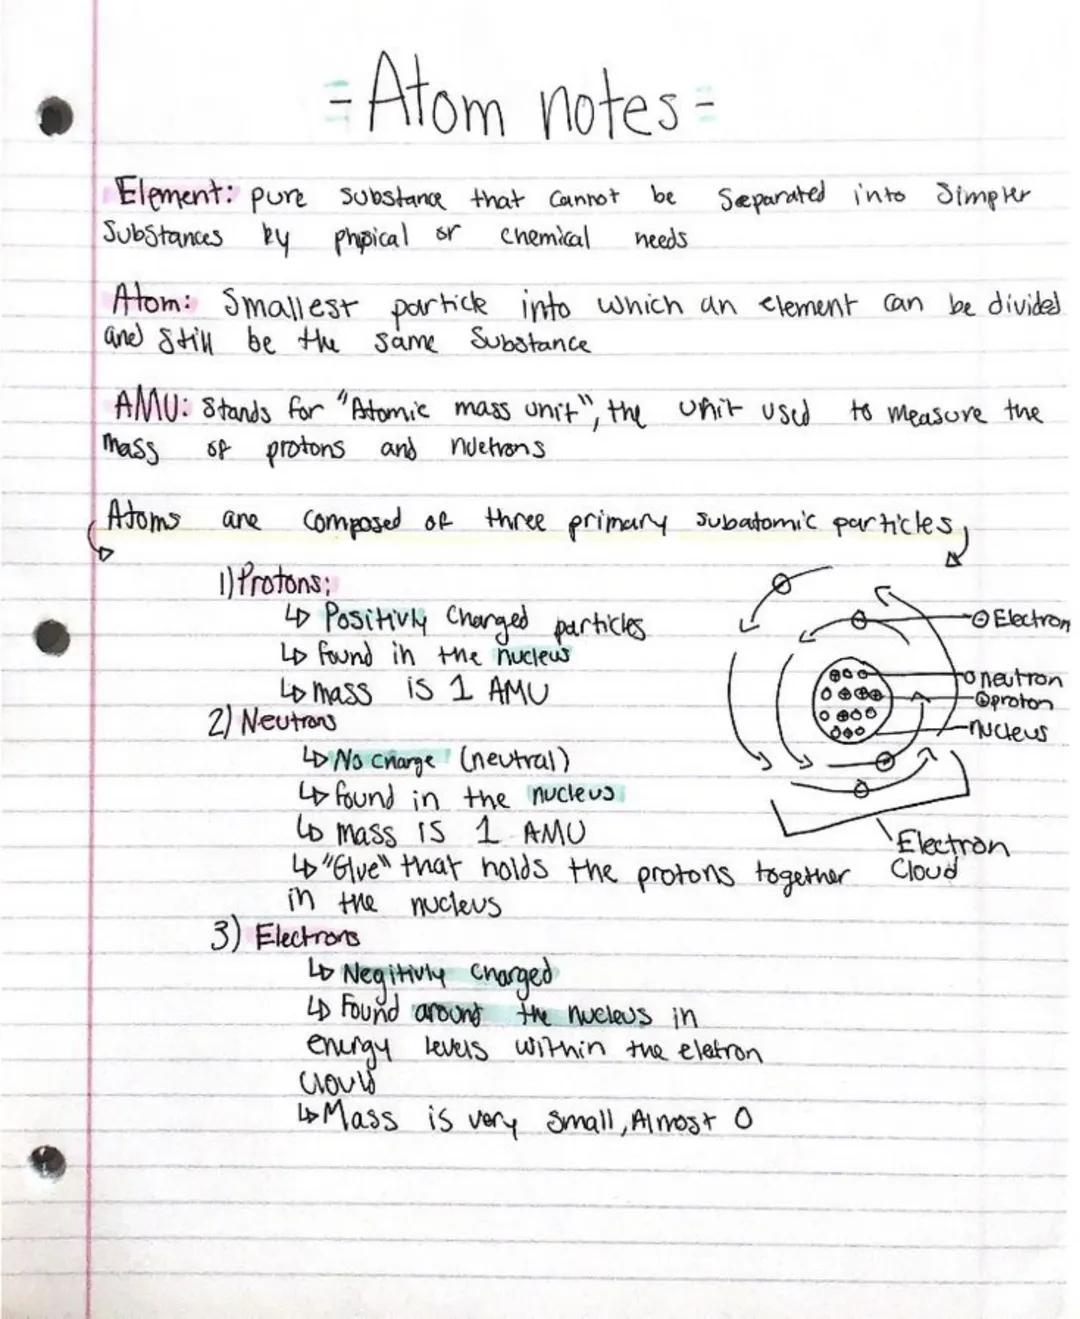 = Atom notes =
Element: pure substance that cannot be Separated into Simpler
Substances by physical or chemical needs
Atom: Smallest particle into which an element can be divided
and Still be the same Substance
AMU: Stands for "Atomic mass unit", the unit used to measure the
mass of protons and nuetrons
Atoms are composed of three primary subatomic particles
1) Protons:
↳ Positivly Charged particles
↳ found in the nucleus
↳ mass is 1 AMU
2) Neutrons
↳ No charge (neutral)
↳ found in the nucleus
↳ mass is 1 AMU
↳ "Glue" that holds the protons together
in the nucleus
3) Electrons
↳ Negitivly Charged
↳ Found around the nucleus in
energy levels within the eletron
Cloud
↳ Mass is very Small, Almost 0
Electron
neutron
proton
nucleus
Electron
Cloud